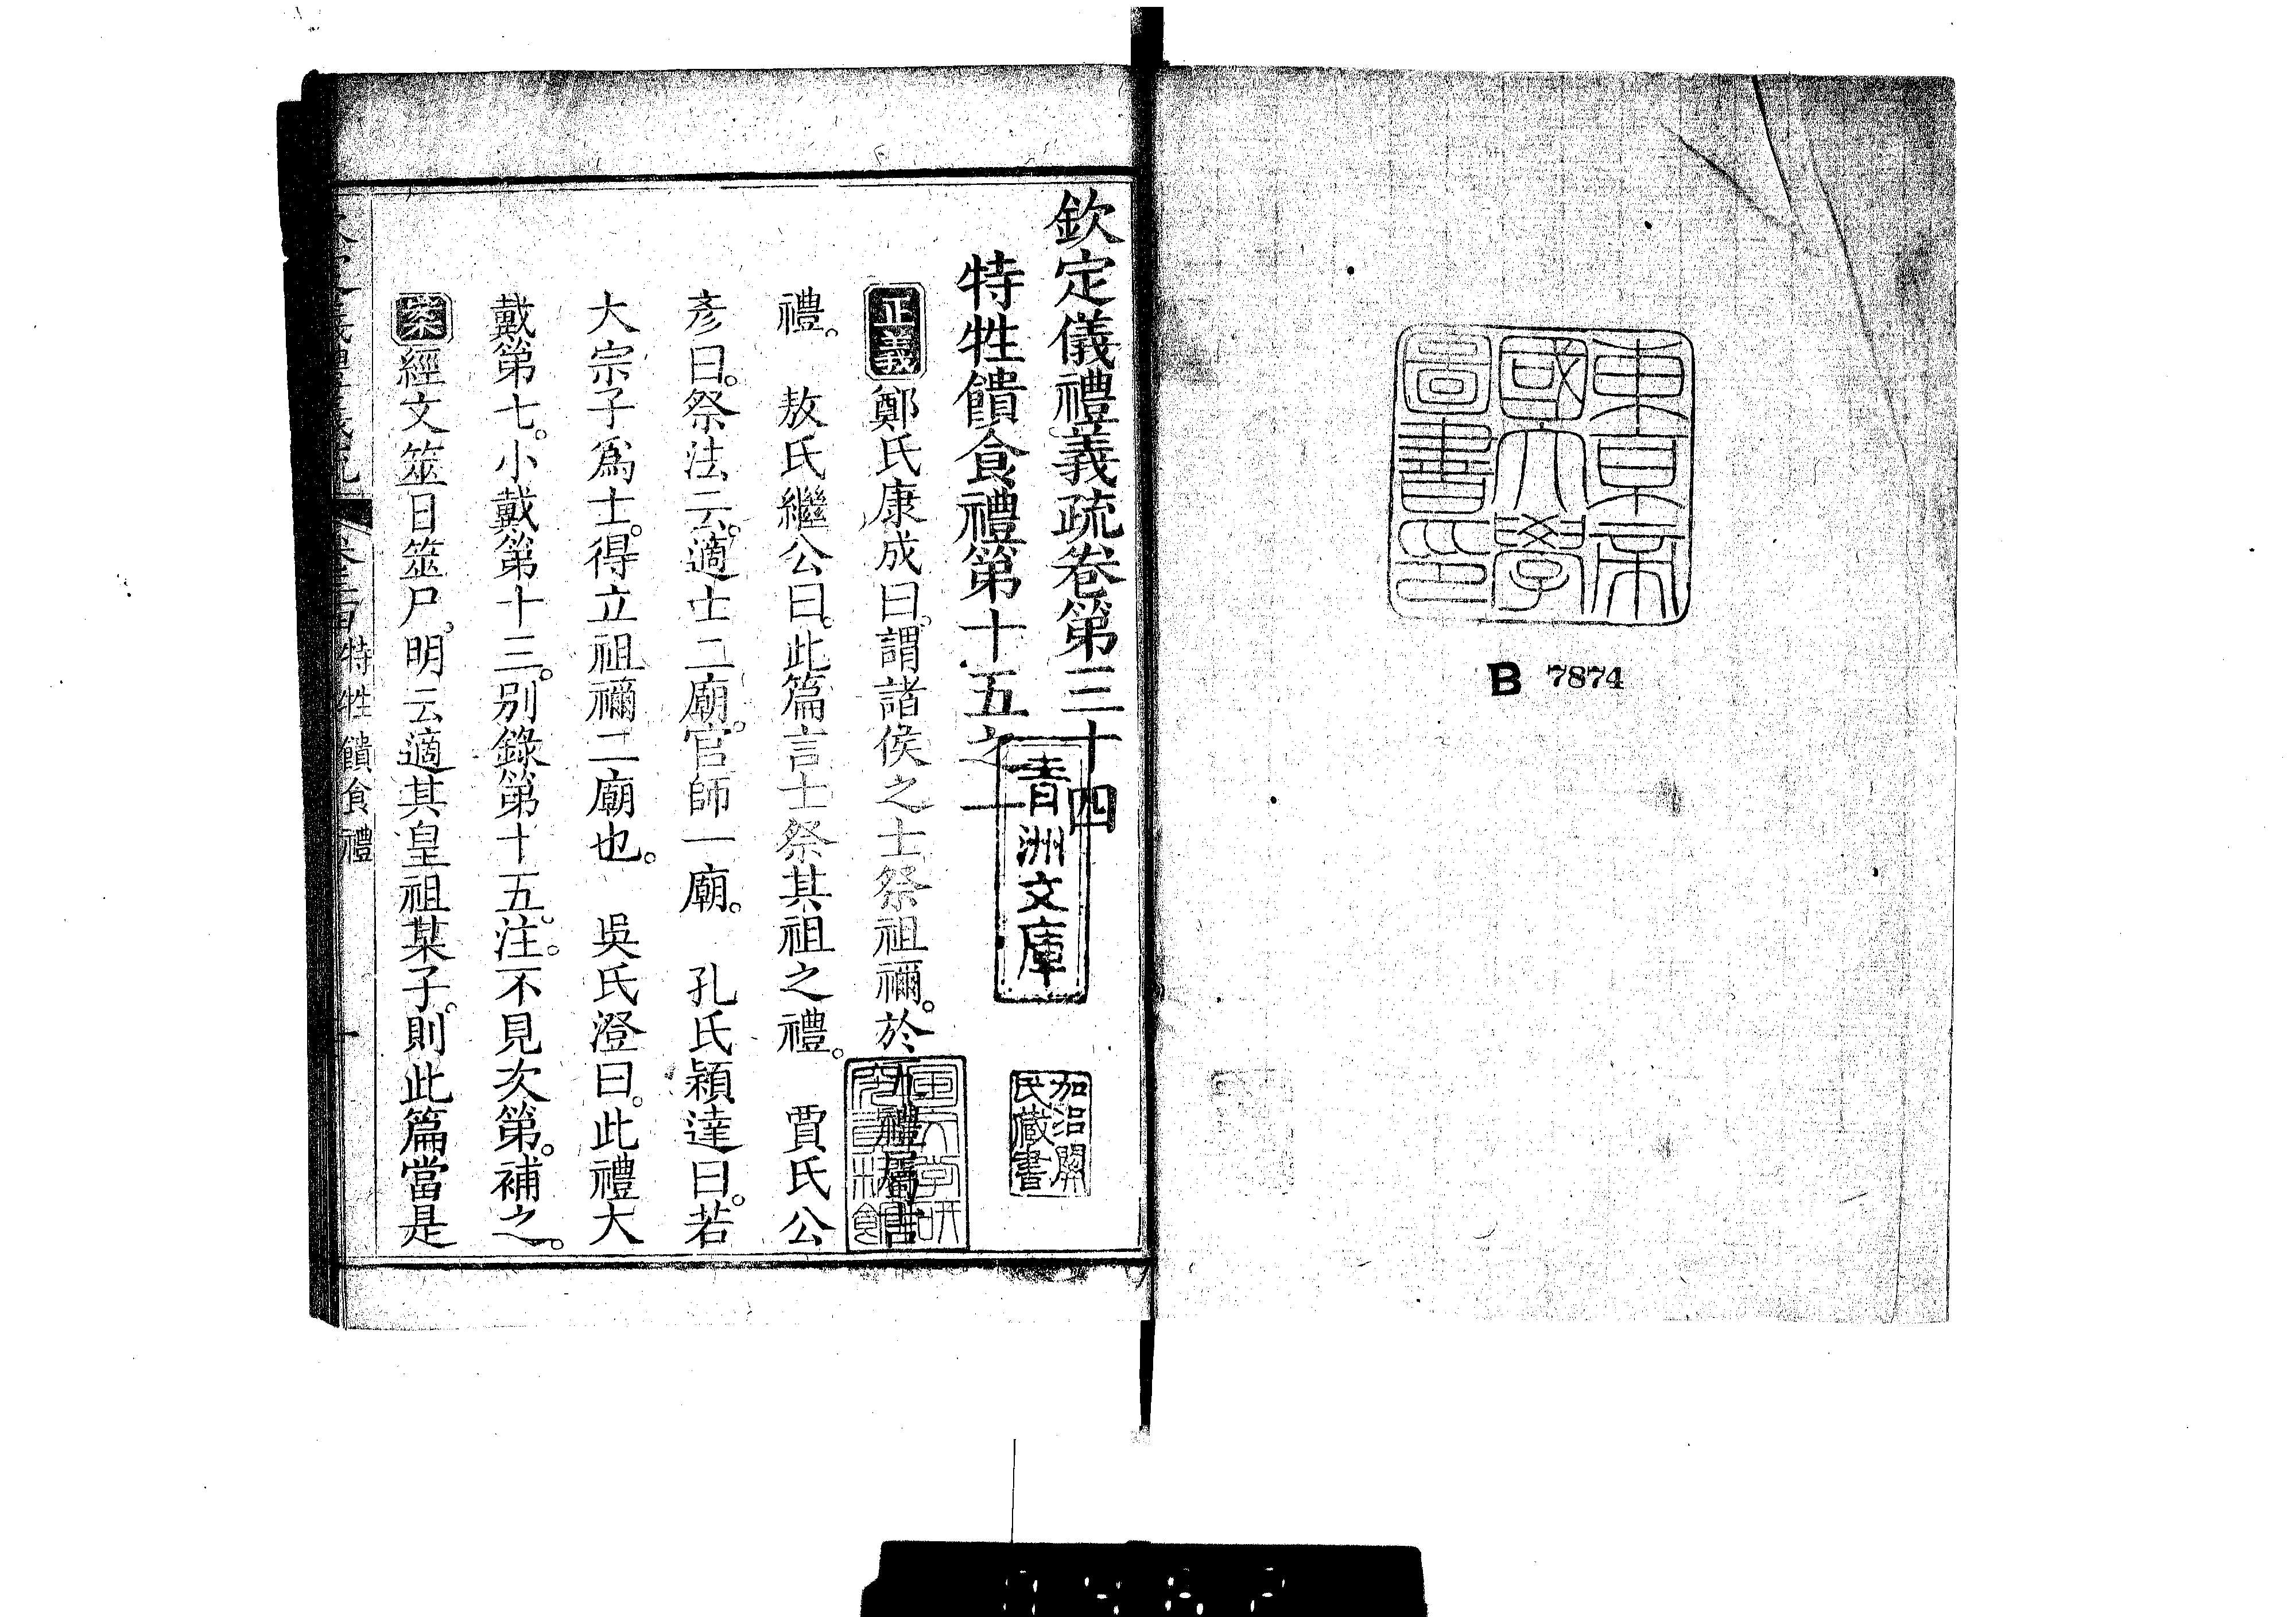 東京帝
國大學
圖書印
B 7874
欽定儀禮義疏卷第三十四
特牲饋食禮第十五之一
青洲文庫
加沼關
民藏書
正義鄭氏康成曰。謂諸侯之士祭祖禰。於五禮屬吉
禮。　敖氏繼公曰。此篇言士祭其祖之禮。　賈氏公
彥曰。祭法云。適士二廟。官師一廟。　孔氏穎達曰。若
大宗子爲士。得立祖禰二廟也。　吳氏澄曰。此禮大
戴第七。小戴第十三。別錄第十五。注。不見次第。補之。
案經文筮日筮尸。明云適其皇祖某子。則此篇當是
特牲饋食禮